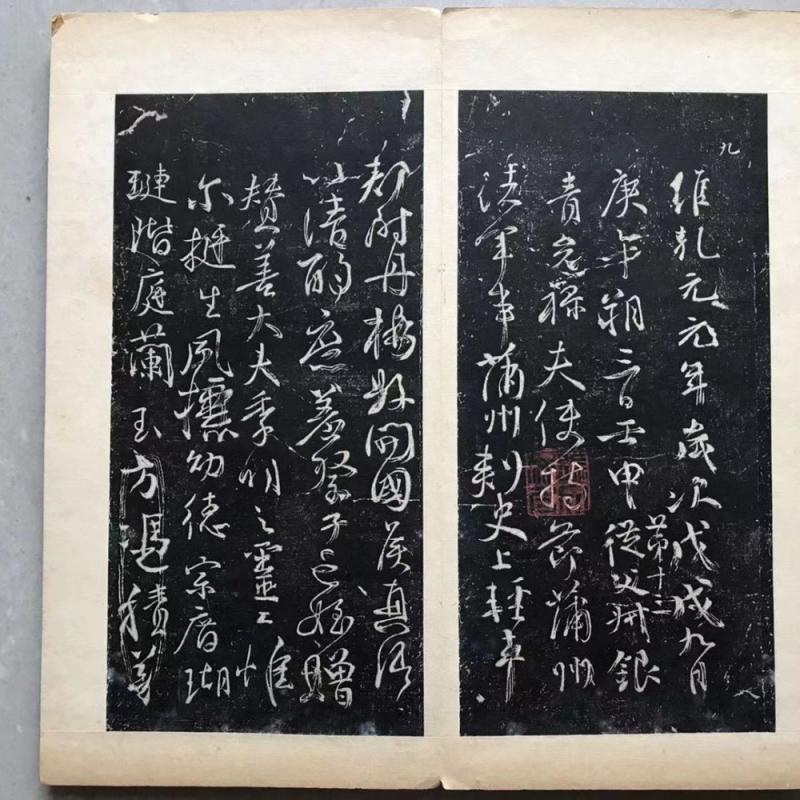 九
維乾元元年歲次戊戌九月
庚午朔三日壬申從父叔銀
第十三
青光祿夫使持節蒲州
諸軍事蒲州刺史上輕車
都尉丹楊縣開國侯真卿
以清酌庶羞祭于亡姪贈
贊善大夫季明之靈曰惟
爾挺生夙標幼德宗廟瑚
璉階庭蘭玉方憑積善